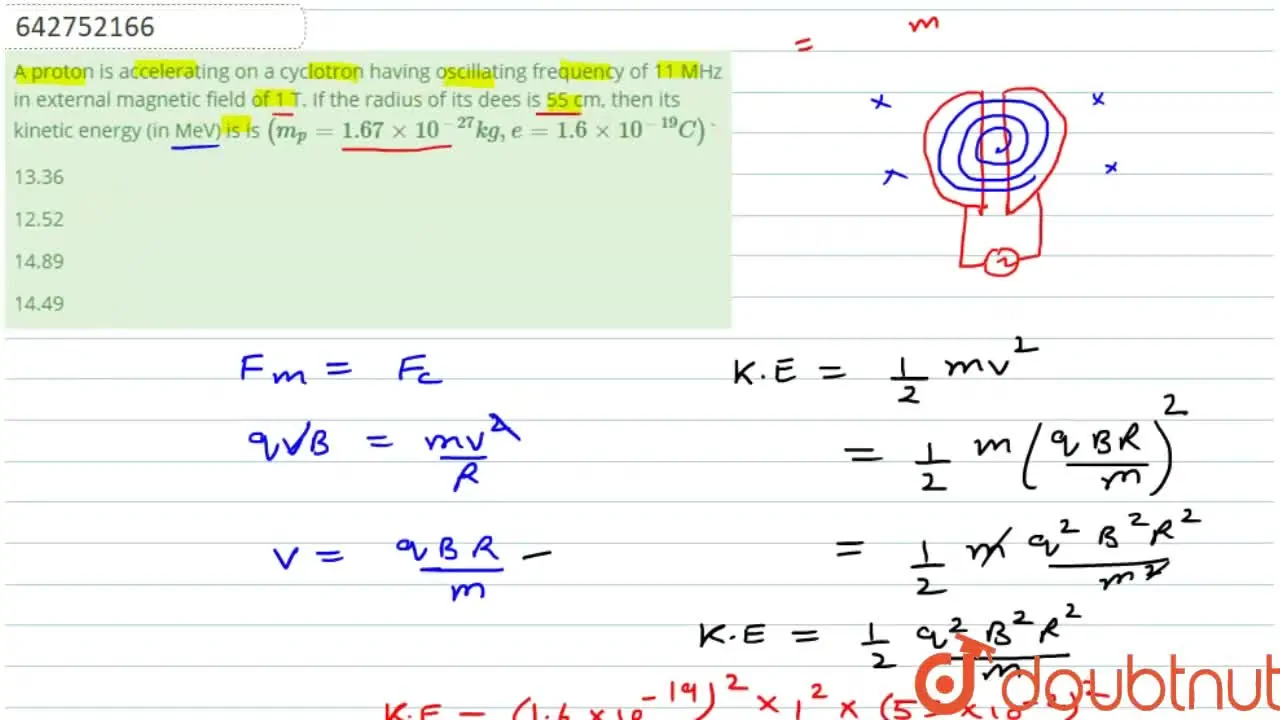 642752166
A proton is accelerating on a cyclotron having oscillating frequency of 11 MHz
in external magnetic field of 1 T. If the radius of its dees is 55 cm, then its
kinetic energy (in MeV) is is (m_p = 1.67 × 10^−27 kg, e = 1.6 × 10^−19 C)
13.36
12.52
14.89
14.49
= m
F_m = F_c
qvB = mv^2/R
v = qBR/m
K.E = 1/2 mv^2
= 1/2 m (qBR/m)^2
= 1/2 m q^2 B^2 R^2/m^2
K.E = 1/2 q^2 B^2 R^2/m
K.E = (1.6 × 10^−19)^2 × 1^2 ×
doubtnut